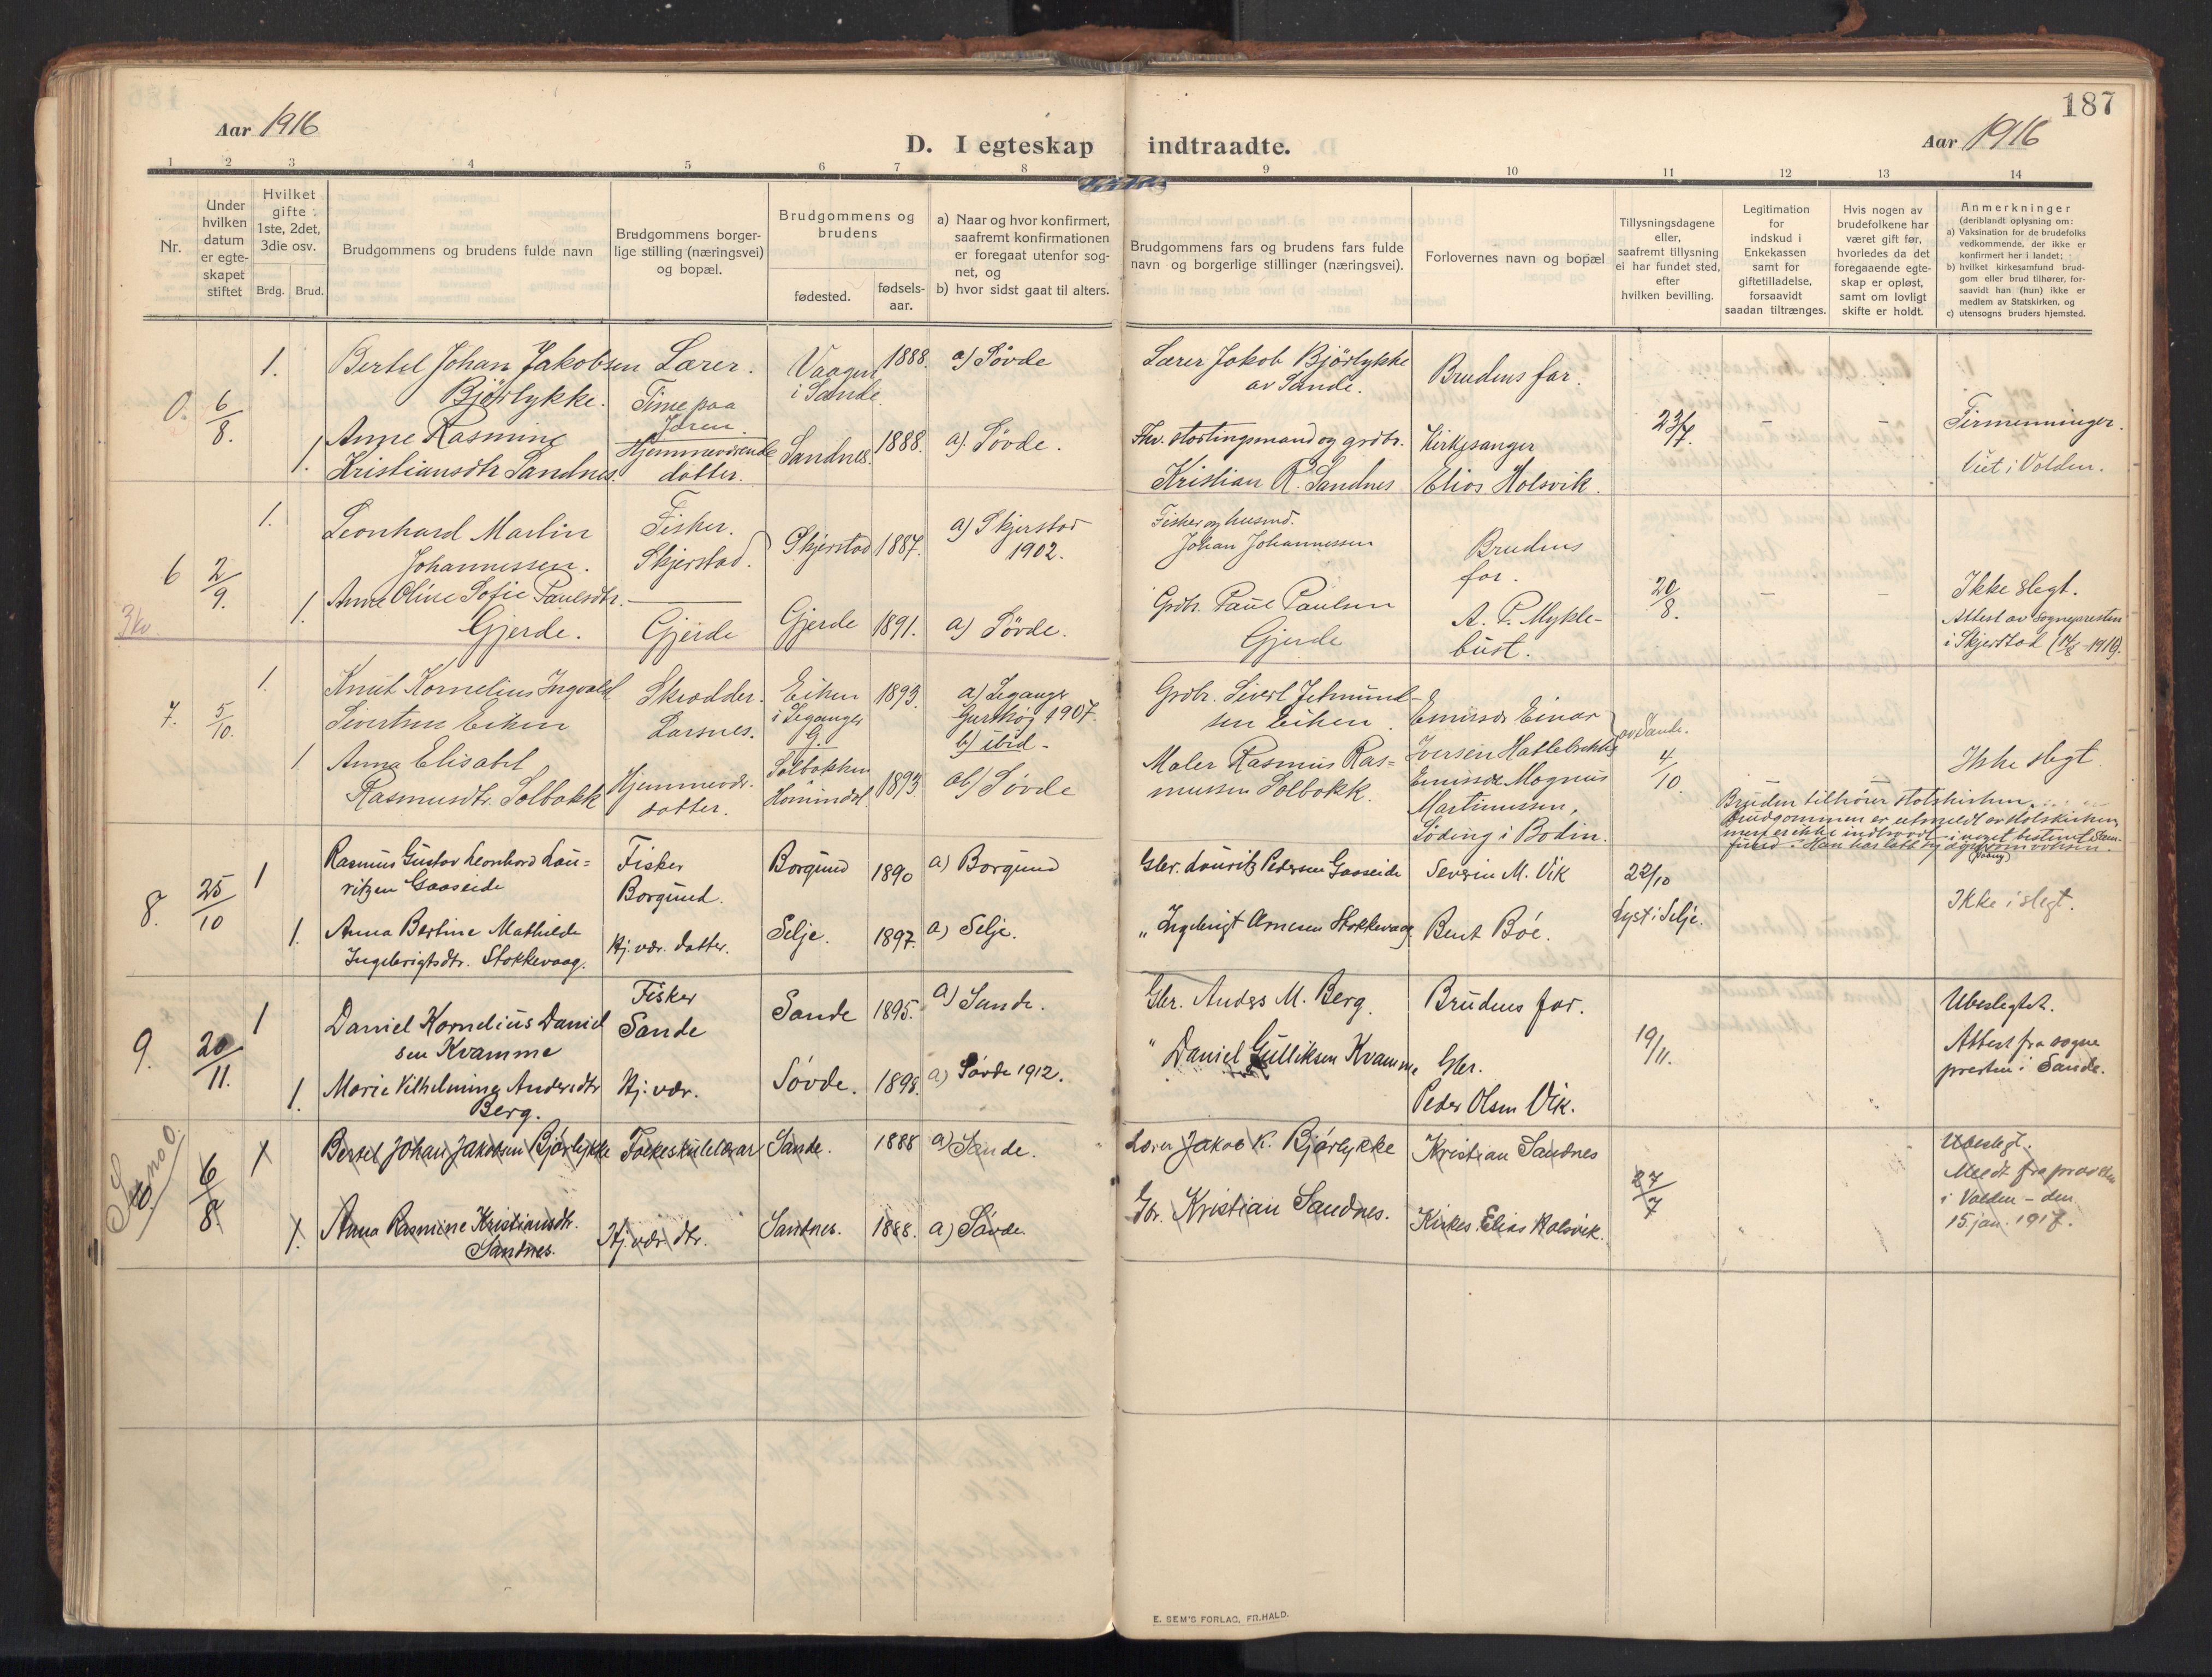 187
Aar 1916
D. I egteskap indtraadte.
Aar 1916
1 2 3 4 5 6 7 8 9 10 11 12 13 14
Nr.
Under
hvilken
datum
er egte-
skapet
stiftet
Hvilket
gifte :
1ste, 2det,
3die osv.
Brdg. Brud.
Brudgommens og brudens fulde navn
Brudgommens borger-
lige stilling (næringsvei)
og bopæl.
Brudgommens og
brudens
fødested.
fødsels-
aar.
a) Naar og hvor konfirmert,
saafremt konfirmationen
er foregaat utenfor sog-
net, og
b) hvor sidst gaat til alters.
Brudgommens fars og brudens fars fulde
navn og borgerlige stillinger (næringsvei).
Forlovernes navn og bopæl
Tillysningsdagene
eller,
saafremt tillysning
ei har fundet sted,
efter
hvilken bevilling.
Legitimation
for
indskud i
Enkekassen
samt for
giftetilladelse,
forsaavidt
saadan tiltrænges.
Hvis nogen av
brudefolkene har
været gift før,
hvorledes da det
foregaaende egte-
skap er opløst,
samt om lovligt
skifte er holdt.
Anmerkninger
(deriblandt oplysning om:
a) Vaksination for de brudefolks
vedkommende, der ikke er
konfirmert her i landet;
b) hvilket kirkesamfund brud-
gom eller brud tilhører, for-
saavidt han (hun) ikke er
medlem av Statskirken, og
c) utensogns bruders hjemsted.
0. 6/8. 1. Bertel Johan Jakobsen
Bjørlykke.
Lærer.
Time paa
Jæren.
Vaagen
i Sande.
1888. a) Søvde
Lærer Jakob Bjørlykke
av Sande.
Brudens far.
1. Anne Rasmine
Kristiansdtr Sandnes.
Hjemmeværende
datter.
Sandnes. 1888. a). Søvde.
Fhv. stortingsmand og grdbr.
Kristian R. Sandnes
Kirkesanger
Elias Holsvik.
23/7. – –
Firmenninger.
Viet i Volden.
6 2/9. 1. Leonhard Martin
Johannessen.
Fisker.
Skjerstad.
Skjerstad 1887. a) Skjerstad
1902.
Fisker og husmd.
Johan Johannessen
Brudens
far.
3kv. 1. Anne Oline Sofie Paulsdtr.
Gjerde.
Gjerde
Gjerde 1891. a) Søvde.
Grdbr. Paul Paulsen
Gjerde
A. P. Mykle-
bust.
20/8. – –
Ikke slegt.
Attest av sognepresten
i Skjerstad (14/8 – 1916).
7. 5/10. 1. Knut Kornelius Ingvald
Sivertsen Eiken
Skrædder.
Larsnes.
Eiken
i Leganger
G.
1893. a) Leganger
1907.
b) ibid –
Grdbr. Sivert Jetmund-
sen Eiken.
Emissær Einar
Iversen
av Sande.
1 Anna Elisabet
Rasmusdtr. Solbakk
Hjemmevær.
datter.
Solbakken
Hornindal.
1893. ab) Søvde
Maler Rasmus Ras=
mussen Solbakk.
Emissær Magnus
Martinussen.
Søding i Bodin.
4/10.
Ikke slegt
Bruden tilhører statskirken.
Brudgommen er utmeldt av statskirken,
men er ikke indtraadt i noget bestemt sam-
fund.
8. 25/10 1 Rasmus Gustav Leonhard Lau=
ritzen Gaaseide
Fisker
Borgund.
Borgund 1890 a) Borgund
Gbr. Lauritz Pedersen Gaaseide
Severin M. Vik
22/10
1. Anna Bertine Mathilde
Ingebrigtsdtr. Stokkevaag.
Hj. vær. datter.
Selje. 1897. a) Selje.
„ Ingebrigt Arnesen Stokkevaag.
Bent Bøe.
Lyst i Selje.
Ikke i slegt.
9. 20/11. 1 Daniel Kornelius Daniel
sen Kvamme
Fisker
Sande
Sande 1895. a) Sande.
Gbr. Anders M. Berg.
Brudens far.
1. Marie Vilhelmine Andersdtr
Berg.
Hj. vær.
Søvde. 1898. a) Søvde 1912.
" Daniel Gulliksen Kvamme
Gbr.
Peder Olsen Vik.
19/11.
Ubeslegtet.
Attest fra sogne
presten i Sande.
10. 6/8 1 Bertel Johan Jakobsen Bjørlykke
Folkeskulelærar
Sande. 1888 a) Sande.
Lærer Jakob K. Bjørlykke
Kristian Sandnes
1. Anna Rasmine Kristiansdtr.
Sandnes.
Hj. vær. dtr.
Sandnes. 1888. a) Søvde
Gbr. Kristian Sandnes.
Kirkes. Elias Holsvik.
27/7
Ubeslegt.
Meldt fra
i Volden – den
15 jan. 1917.
E. SEM'S FORLAG, FR.HALD.